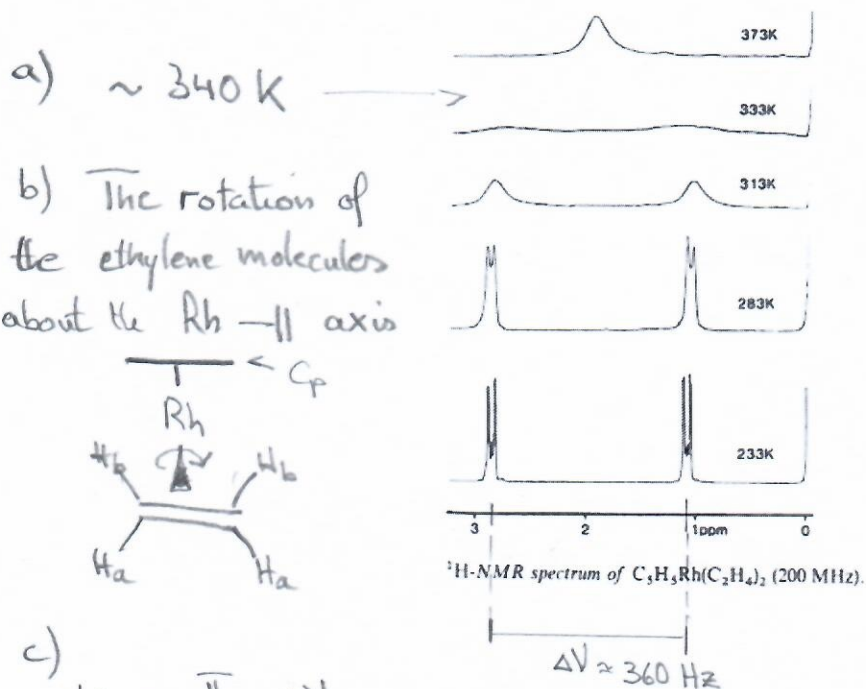 a) ~ 340 K
b) The rotation of
the ethylene molecules
about the Rh –|| axis
Cp
Rh
Hb Hb
Ha Ha
c)
373K
333K
313K
283K
233K
3 2 1ppm 0
¹H-NMR spectrum of C₅H₅Rh(C₂H₄)₂ (200 MHz).
ΔV ≈ 360 Hz